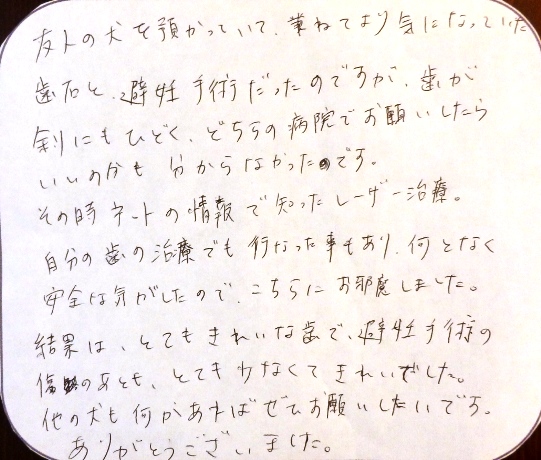 友人の犬を預かっていて、兼ねてより気になっていた
歯石と、避妊手術だったのですが、歯が
余りにもひどく、どちらの病院でお願いしたら
いいのかも分からなかったのです。
その時ネートの情報で知ったレーザー治療。
自分の歯の治療でも行なった事もあり、何となく
安全な気がしたので、こちらにお邪魔しました。
結果は、とてもきれいな歯で、避妊手術の
傷のあとも、とても少なくてきれいでした。
他の犬も何かあればぜひお願いしたいです。
ありがとうございました。